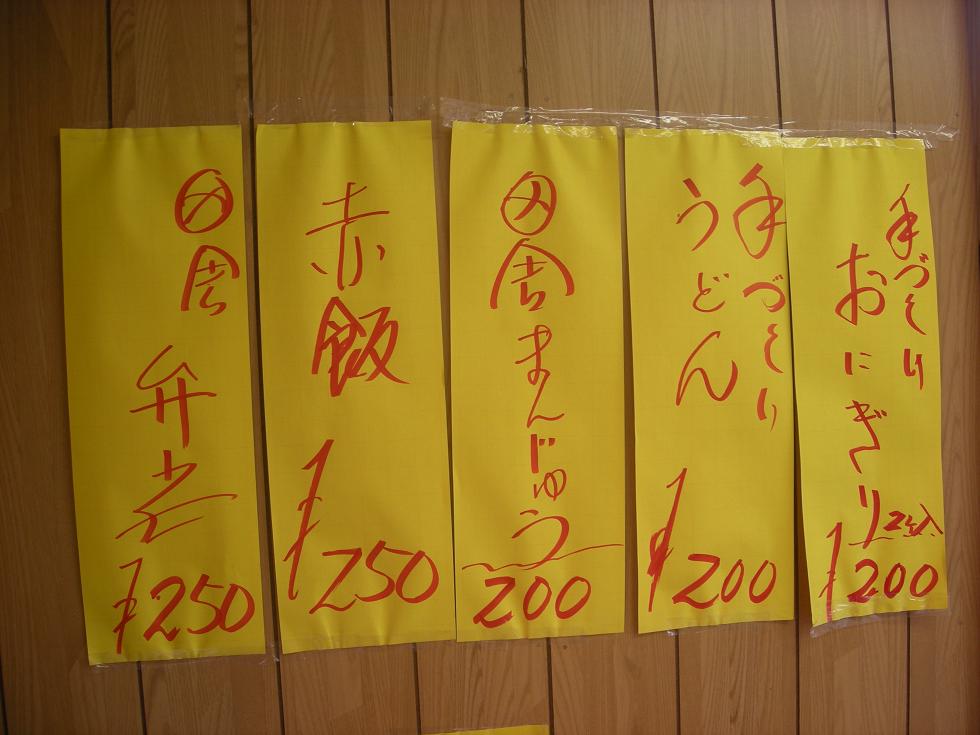 手づくり
おにぎり 2ヶ入
¥200
手づくり
うどん
¥200
田舎まんじゅう
200
赤飯
¥250
田舎弁当
¥250